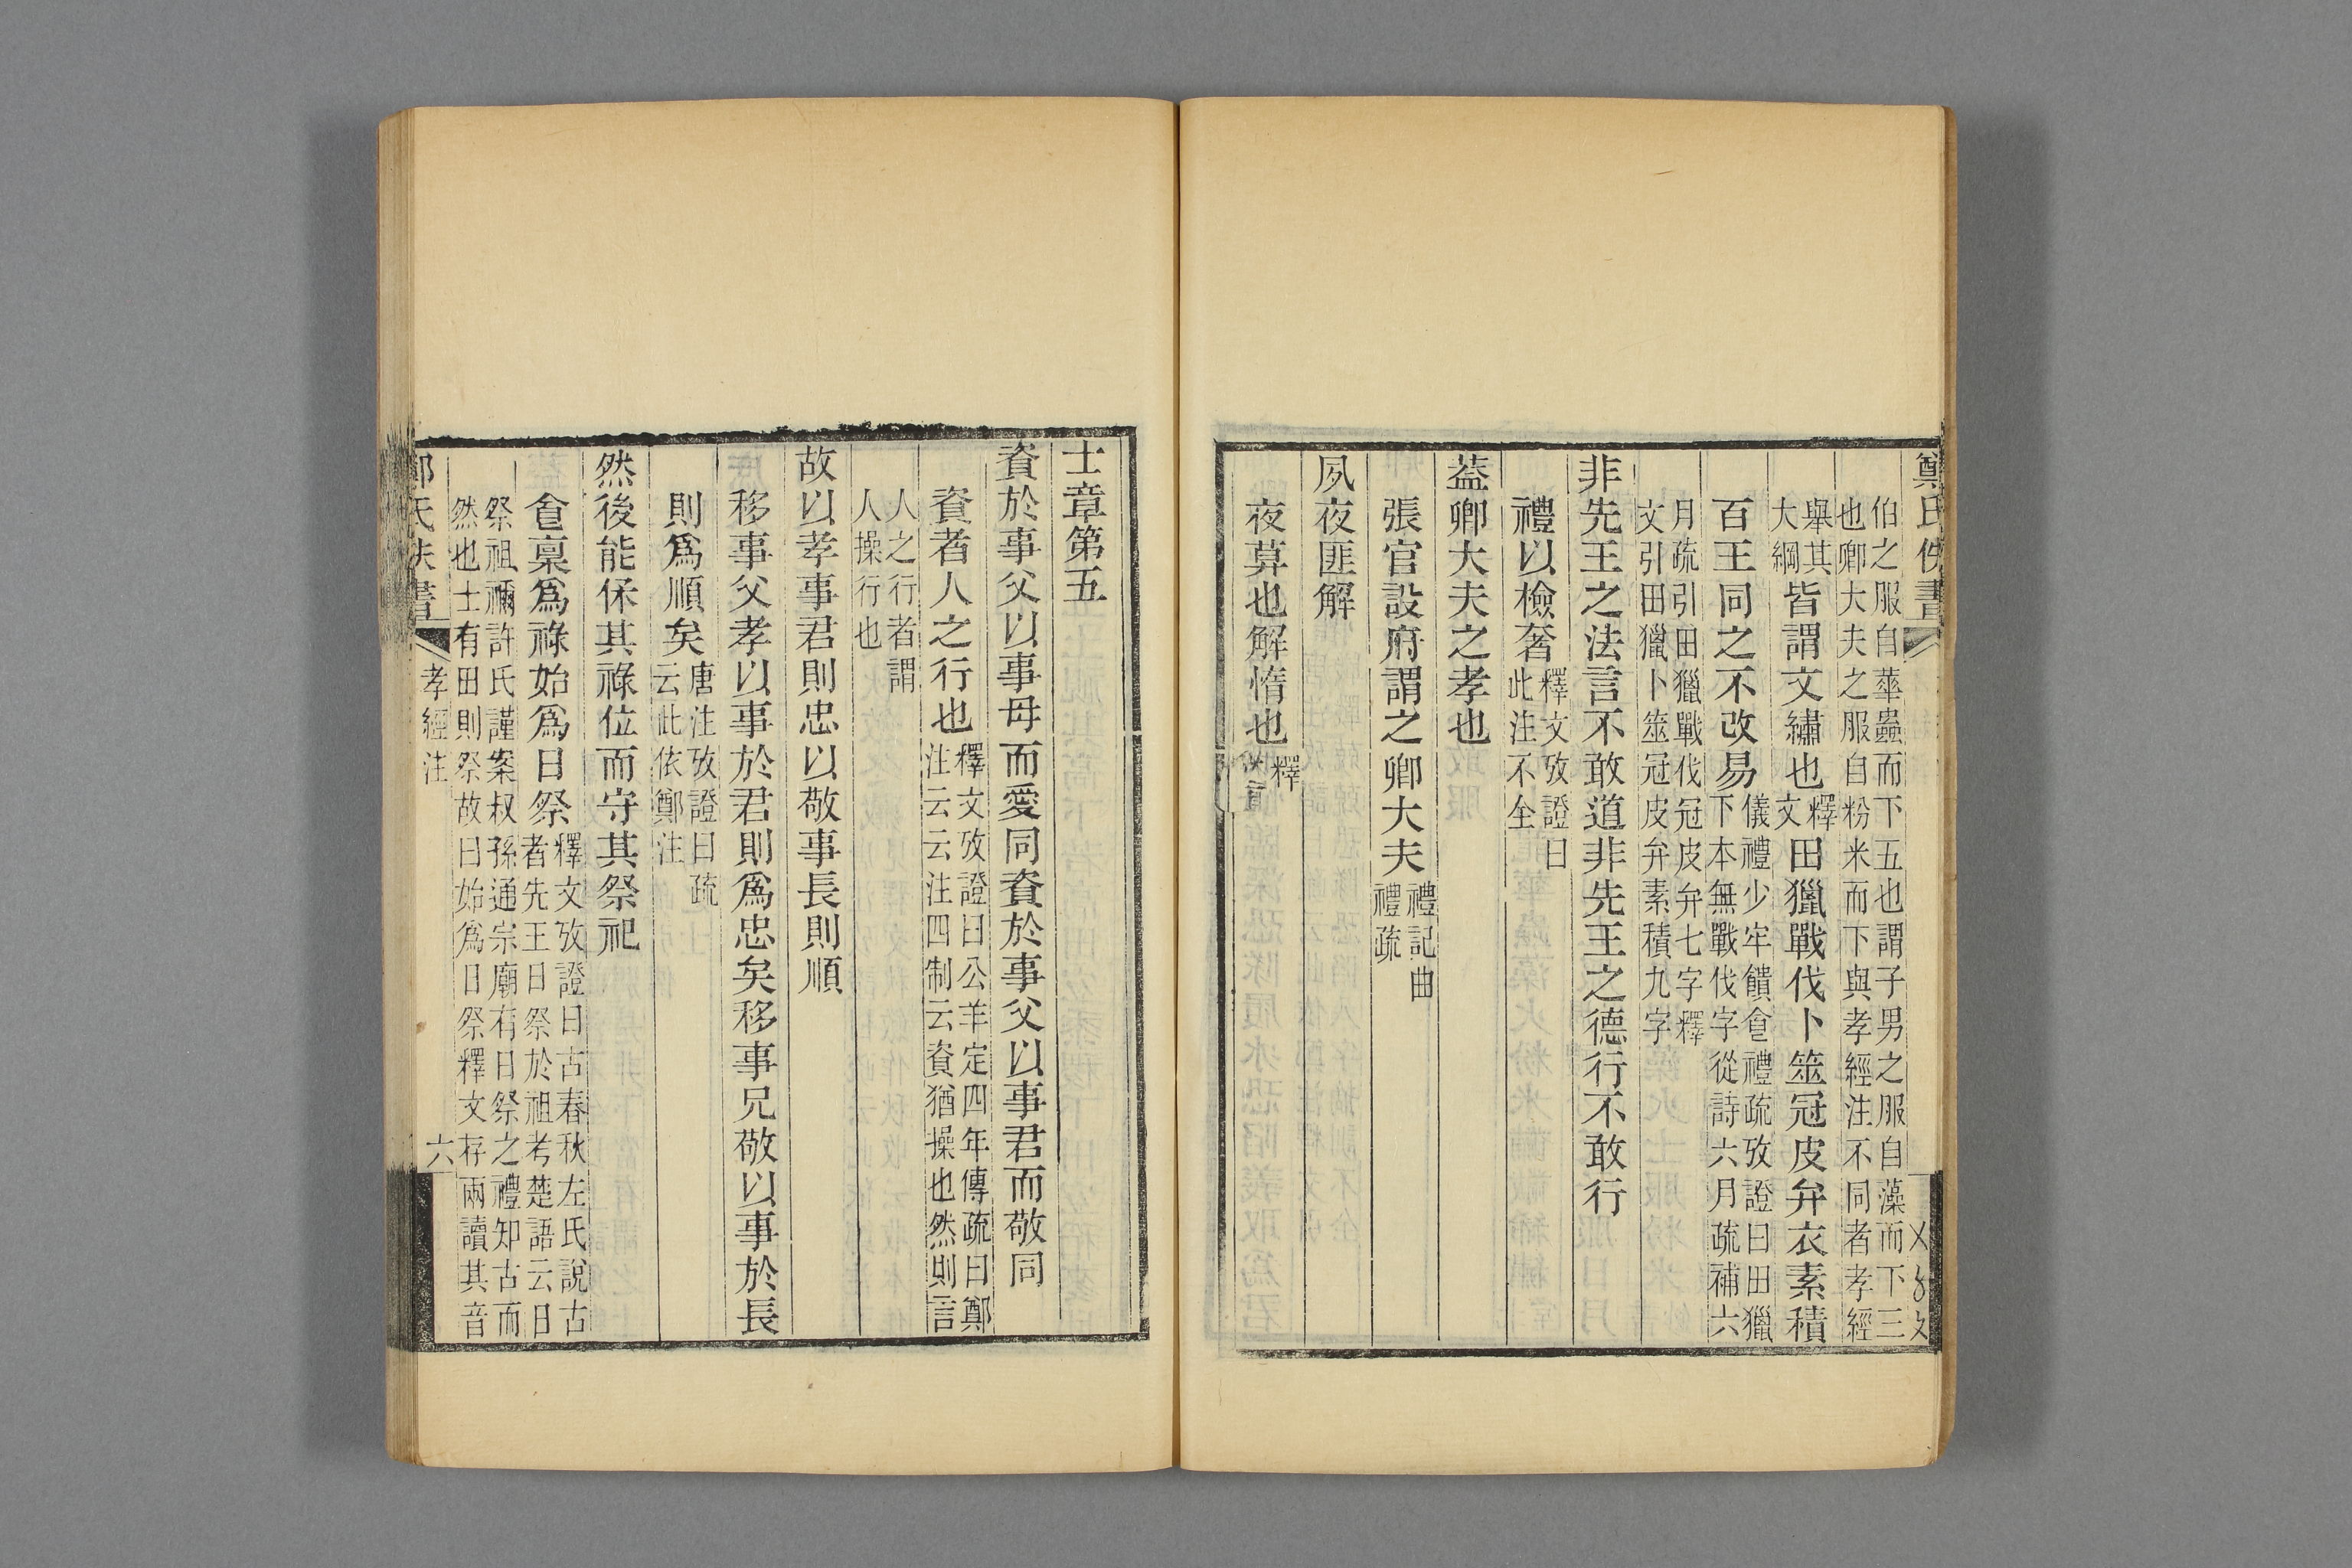 鄭氏佚書
伯之服自華蟲而下五也謂子男之服自藻而下三
也卿大夫之服自粉米而下與孝經注不同者孝經
舉其
大綱
皆謂文繡也
釋
文
田獵戰伐卜筮冠皮弁衣素積
百王同之不改易
儀禮少牢饋食禮疏攷證曰田獵
下本無戰伐字從詩六月疏補六
月疏引田獵戰伐冠皮弁七字釋
文引田獵卜筮冠皮弁素積九字
非先王之法言不敢道非先王之德行不敢行
禮以檢奢
釋文攷證曰
此注不全
葢卿大夫之孝也
張官設府謂之卿大夫
禮記曲
禮疏
夙夜匪解
夜莫也解惰也
釋
士章第五
資於事父以事母而愛同資於事父以事君而敬同
資者人之行也
釋文攷證曰公羊定四年傳疏曰鄭
注云云注四制云資猶操也然則言
人之行者謂
人操行也
故以孝事君則忠以敬事長則順
移事父孝以事於君則爲忠矣移事兄敬以事於長
則爲順矣
唐注攷證曰疏
云此依鄭注
然後能保其祿位而守其祭祀
食稟爲祿始爲日祭
釋文攷證曰古春秋左氏說古
者先王日祭於祖考楚語云日
祭祖禰許氏謹案叔孫通宗廟有日祭之禮知古而
然也士有田則祭故曰始爲日祭釋文存兩讀其音
鄭氏佚書
孝經注
六